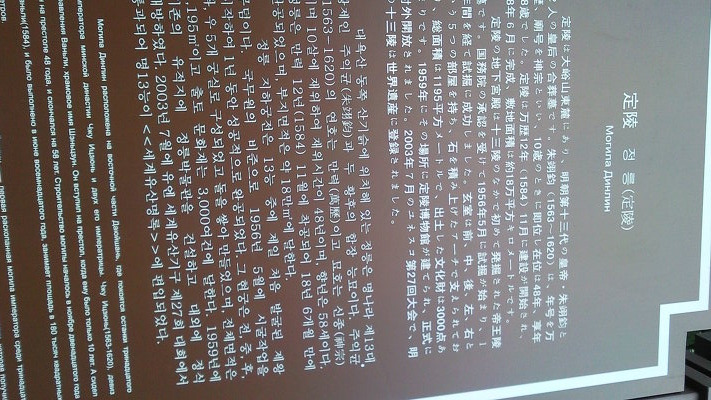 定陵 정릉(定陵)
Могила Динлин
定陵は大峪山東麓にあり、明朝第十三代皇帝・朱翊鈞と
人の皇后の合葬墓です。朱翊鈞(1563～1620)は、年号を万
暦、廟号を神宗といい、10歳のときに即位し在位は48年、享年
8歳でした。定陵は万暦12年(1584)11月に建設が開始され、
8年6月に完成、敷地面積は約18万平方キロメートルです。
定陵の地下宮殿は十三陵のなかで初めて発掘された帝王陵
墓です。国務院の承認を受けて1956年5月に試掘が始まり、1
年間を経て試掘に成功しました。玄室は前、中、後、左、右と
5つの部屋を持ち、石を積み上げたアーチで支えられてお
総面積は1195平方メートルで、出土した文化財は3000点あ
です。1959年にその場所に定陵博物館が建てられ、正式に
対外開放されました。2003年7月のユネスコ第27回大会で、明
十三陵は世界遺産に登録されました。
대욕산 동쪽 산기슭에 위치해 있는 정릉은 명나라 제13대
황제인 주익균(朱翊鈞)과 두 황후의 합장 능묘이다. 주익균
(1563~1620)의 연호는 만력(萬曆)이고 묘호는 신종(神宗)
이며 10살에 재위하여 재위시간이 48년이며, 향년은 58세이다.
정릉은 만력 12년(1584) 11월에 착공되어 18년 6개월 만에
완공되었으며 부지면적은 약 18만㎡에 달한다.
정릉 지하궁전은 13릉 중에 제일 처음 발굴된 제왕
능묘이다. 국무원의 비준으로 1956년 5월에 시굴작업을
시작하여 1년 동안 성공적으로 완공되었다. 그 현궁은 전, 중, 후,
좌, 우 5개 궁실로 구성되었고 돌을 쌓아 만들었으며, 전체면적은
1,195㎡이고 출토 문화재는 3,000여건에 달한다. 1959년에
기존의 유적지에 정릉박물관을 건설하고 대외에 정식
개방하였다. 2003년 7월에 유엔 세계유산기구 제27회 대회에서
통과되어 명13능이 <<세계유산명록>>에 편입되었다.
Могила Динлин расположена на восточной части Даюйшань, где покоятся останки тринадцатого
императора минской династии Чжу Ицзюнь и двух его императриц. Чжу Ицзюнь(1563-1620), девиз
правления Ваньли, храмовое имя Шэньцзун. Он вступил на престол, когда ему было только 10 лет. А сидел
на престоле 48 года, и скончался на 58 лет. Строительство могилы началось в ноябре двенадцатого года
Ваньли(1584), и было выполнено в июне восемнадцатого года, занимает площадь в 180 тысяч квадратных
первая раскопанная могила императора среди тринадцати